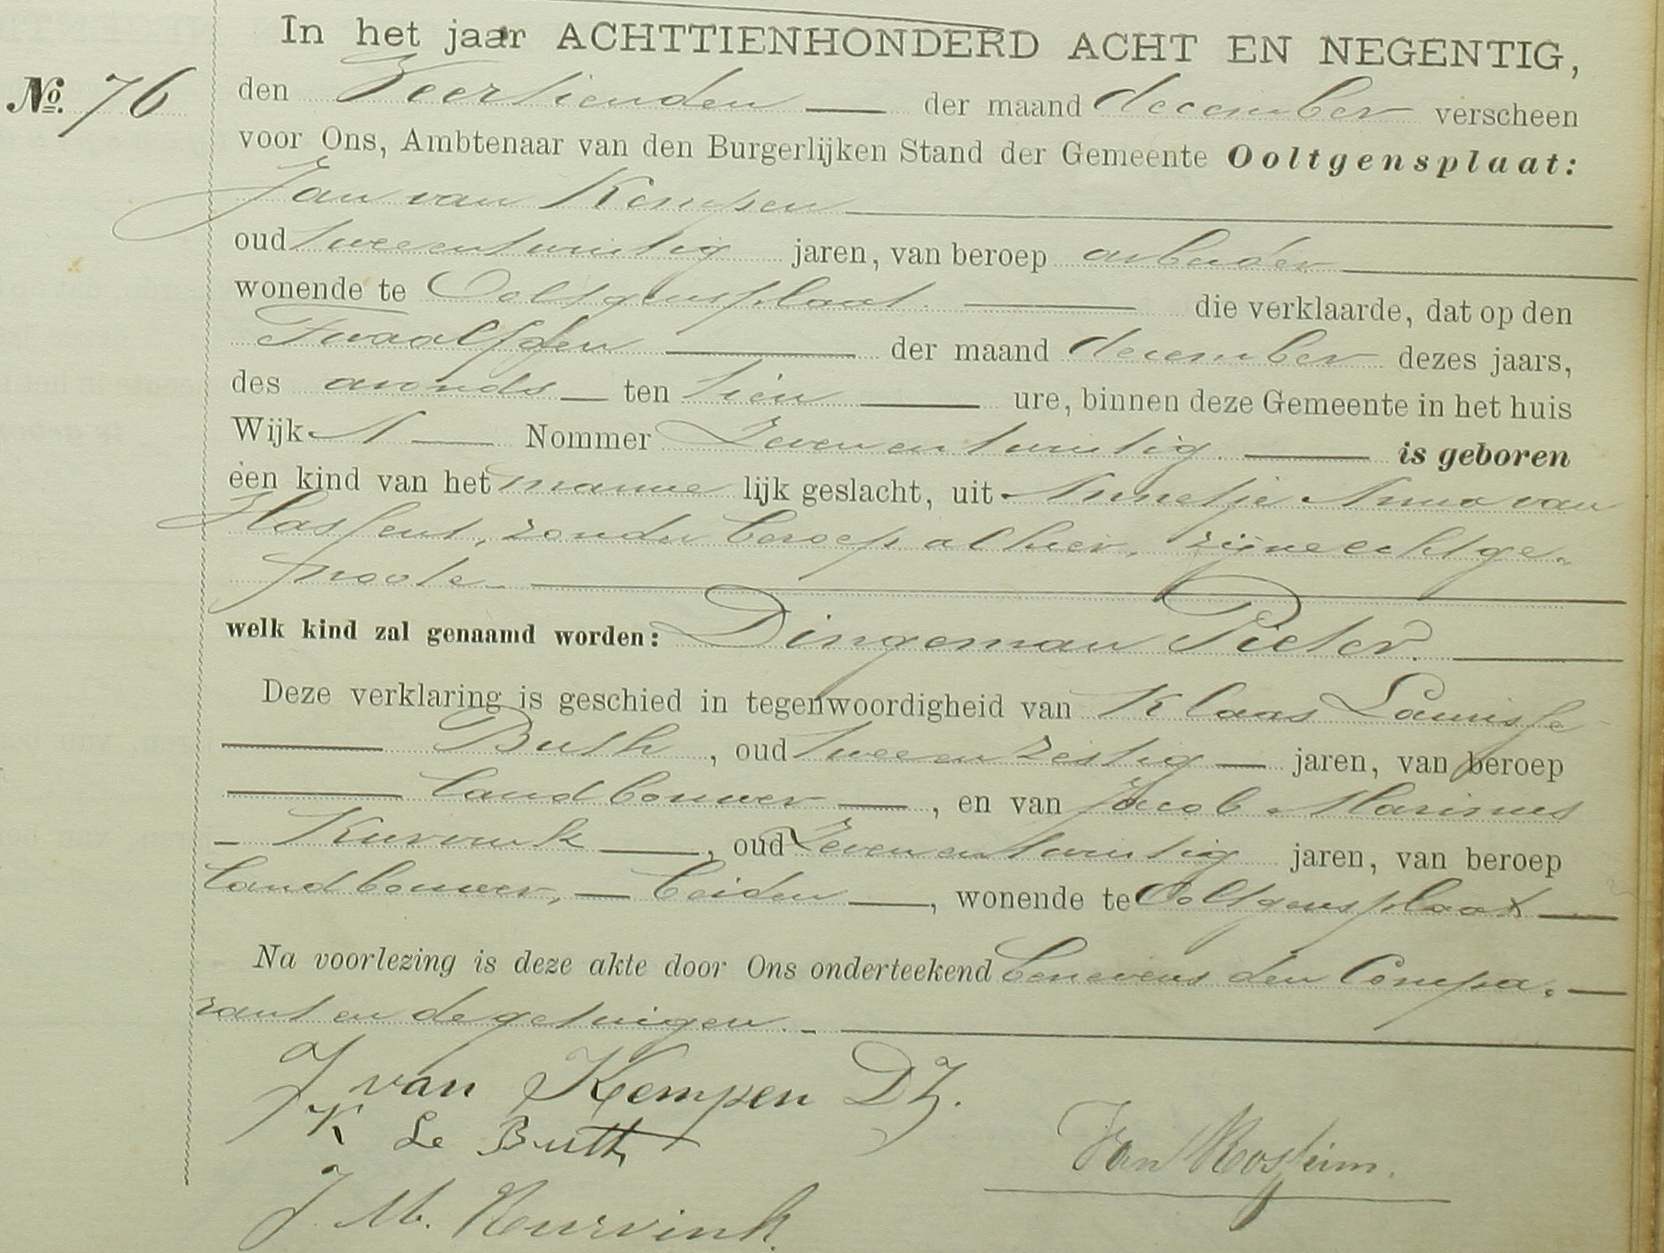 In het jaar ACHTTIENHONDERD ACHT EN NEGENTIG,
No. 76 den Veertienden der maand december verscheen
voor Ons, Ambtenaar van den Burgerlijken Stand der Gemeente Ooltgensplaat:
Jan van Kempen
oud tweeentwintig jaren, van beroep arbeider
wonende te Ooltgensplaat. die verklaarde, dat op den
Twaalfden der maand december dezes jaars,
des avonds ten tien ure, binnen deze Gemeente in het huis
Wijk A Nommer Zevenentwintig. is geboren
een kind van het manne lijk geslacht, uit Annetje Anna van
zonder beroep alhier, zijne echtge-
noote
welk kind zal genaamd worden: Dingeman Pieter.
Deze verklaring is geschied in tegenwoordigheid van Klaas Lauwisse
Buth, oud tweeenzestig jaren, van beroep
landbouwer, en van Jacob Marinus
Kurvink, oud Zevenentwintig jaren, van beroep
landbouwer, beiden, wonende te Ooltgensplaat
Na voorlezing is deze akte door Ons onderteekend benevens den Compa-
rant en de getuigen.
J van Kempen DZ.
K Le Buth
Van Rossum.
J. M. Kurvink.